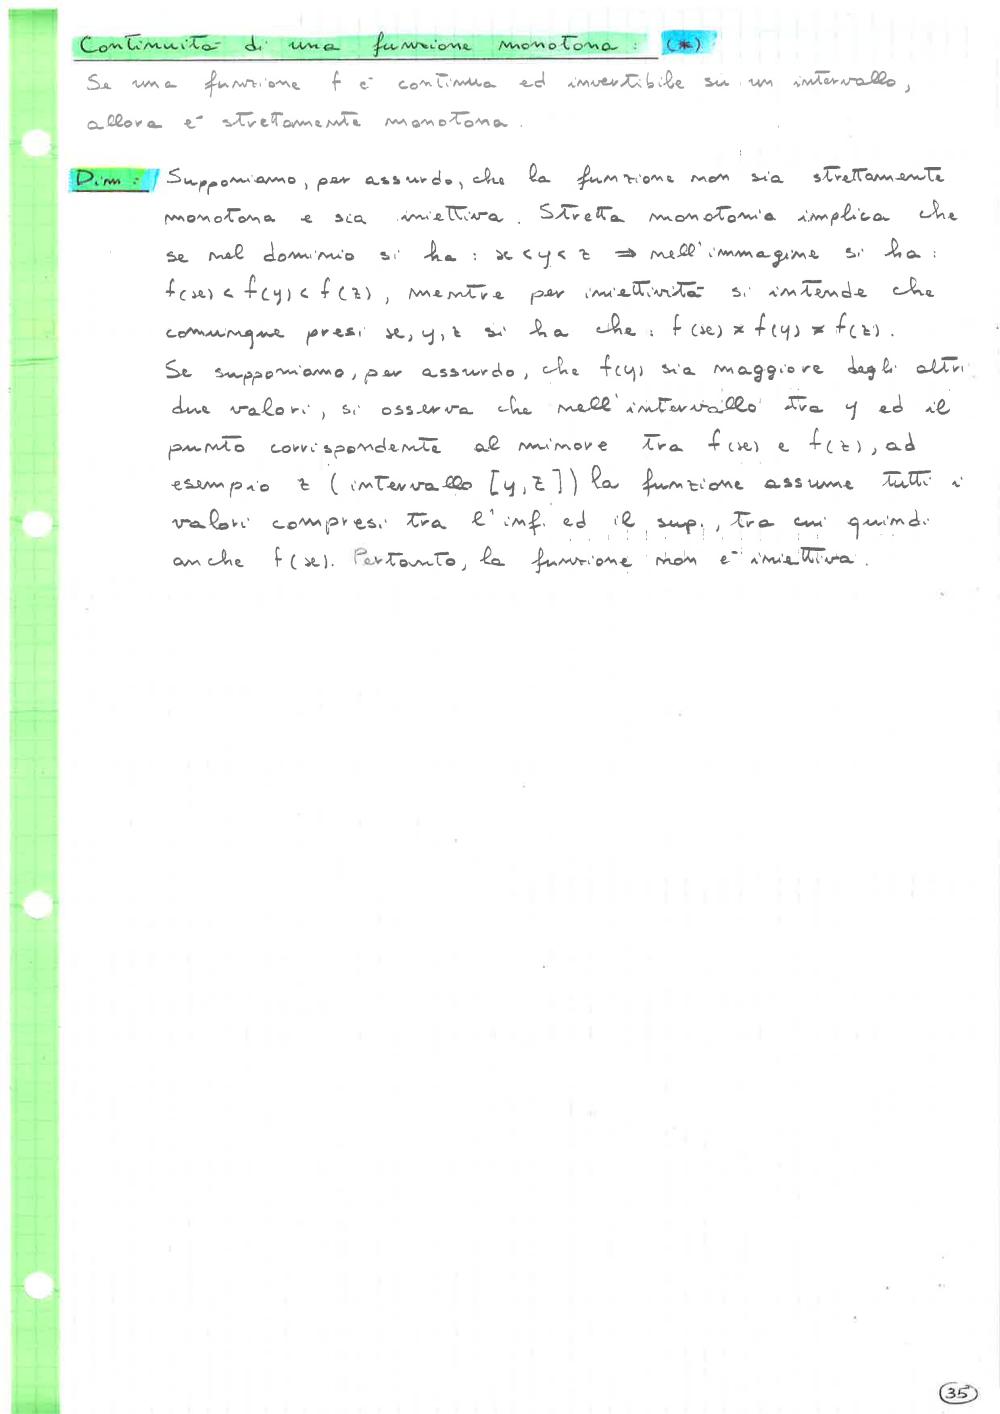 Continuità di una funzione monotona: (*)
Se una funzione f è continua ed invertibile su un intervallo,
allora è strettamente monotona.
Dim: Supponiamo, per assurdo, che la funzione non sia strettamente
monotona e sia iniettiva. Stretta monotonia implica che
se nel dominio si ha: x < y < z ⇒ nell'immagine si ha:
f(x) < f(y) < f(z), mentre per iniettività si intende che
comunque presi x, y, z si ha che: f(x) ≠ f(y) ≠ f(z).
Se supponiamo, per assurdo, che f(y) sia maggiore degli altri
due valori, si osserva che nell'intervallo tra y ed il
punto corrispondente al minore tra f(x) e f(z), ad
esempio z (intervallo [y,z]) la funzione assume tutti i
valori compresi tra l'inf. ed il sup., tra cui quindi
anche f(x). Pertanto, la funzione non è iniettiva.
35